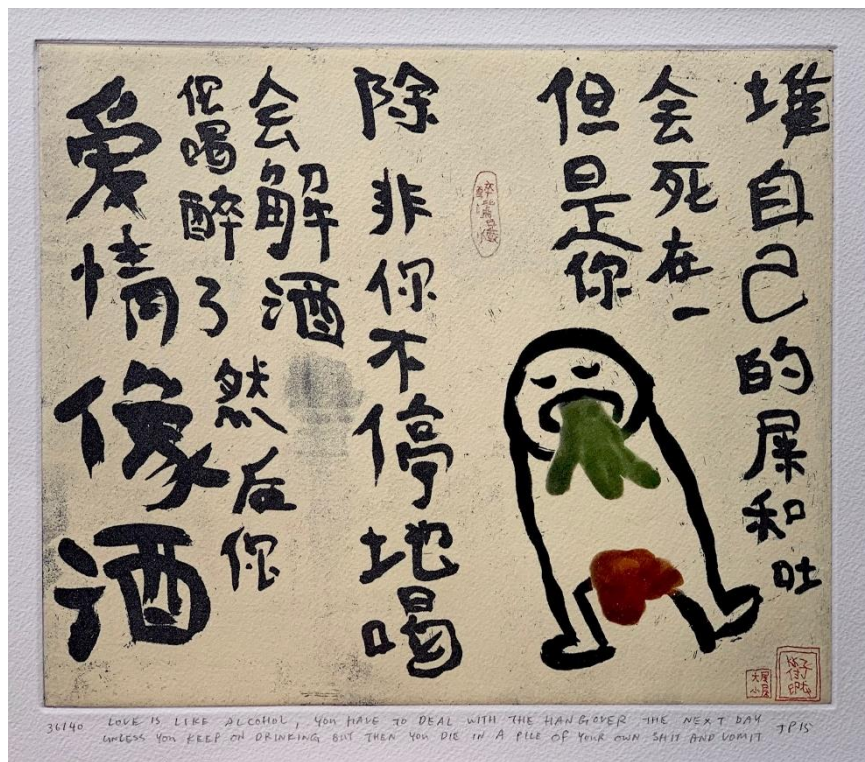 爱情像酒
你喝醉了
然后你
会解酒
除非你不停地喝
但是你
会死在一
堆自己的屎和吐
36/40 LOVE IS LIKE ALCOHOL, YOU HAVE TO DEAL WITH THE HANGOVER THE NEXT DAY
UNLESS YOU KEEP ON DRINKING BUT THEN YOU DIE IN A PILE OF YOUR OWN SHIT AND VOMIT JP15